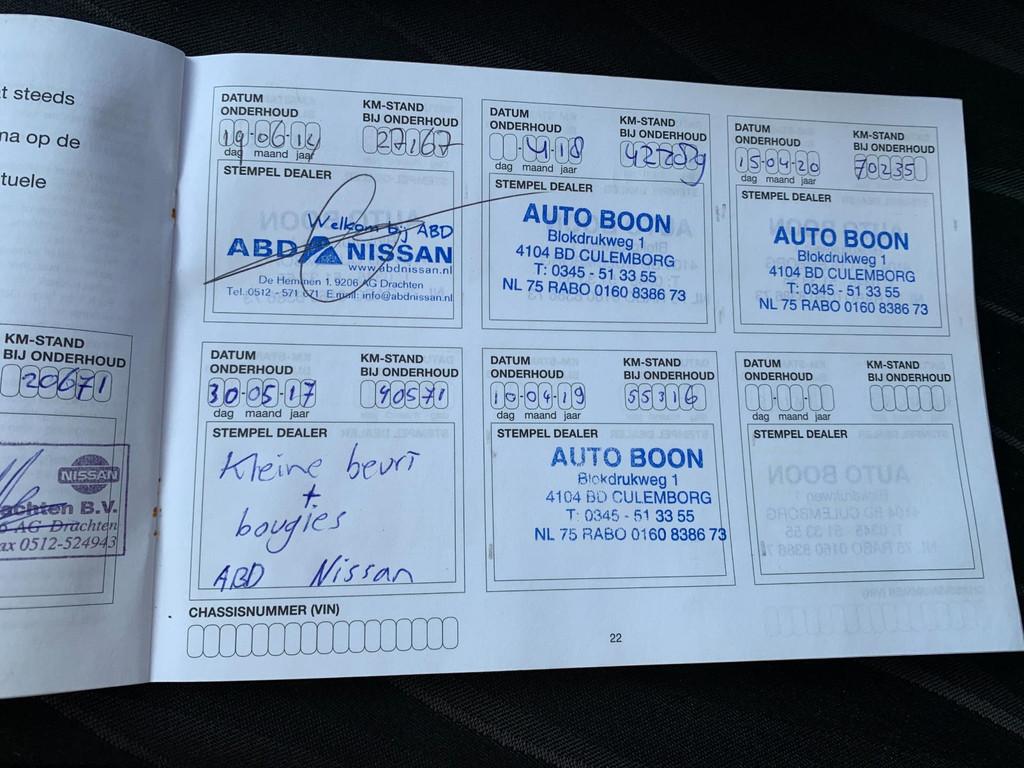 t steeds
ma op de
tuele
KM-STAND
BIJ ONDERHOUD
20671
NISSAN
achten B.V.
AG Drachten
ax 0512-524943
DATUM
ONDERHOUD
KM-STAND
BIJ ONDERHOUD
19-06-14
27167
dag maand jaar
STEMPEL DEALER
Welkom bij ABD
ABD NISSAN
www.abdnissan.nl
De Hemmen 1, 9206 AG Drachten
Tel. 0512 - 571 671 E.mail: info@abdnissan.nl
DATUM
ONDERHOUD
KM-STAND
BIJ ONDERHOUD
30-05-17
40571
dag maand jaar
STEMPEL DEALER
Kleine beurt
+
bougies
ABD Nissan
DATUM
ONDERHOUD
KM-STAND
BIJ ONDERHOUD
4-18
42289
dag maand jaar
STEMPEL DEALER
AUTO BOON
Blokdrukweg 1
4104 BD CULEMBORG
T: 0345 - 51 33 55
NL 75 RABO 0160 8386 73
DATUM
ONDERHOUD
KM-STAND
BIJ ONDERHOUD
10-04-19
55316
dag maand jaar
STEMPEL DEALER
AUTO BOON
Blokdrukweg 1
4104 BD CULEMBORG
T: 0345 - 51 33 55
NL 75 RABO 0160 8386 73
DATUM
ONDERHOUD
KM-STAND
BIJ ONDERHOUD
15-04-20
70235
dag maand jaar
STEMPEL DEALER
AUTO BOON
Blokdrukweg 1
4104 BD CULEMBORG
T: 0345 - 51 33 55
NL 75 RABO 0160 8386 73
DATUM
ONDERHOUD
KM-STAND
BIJ ONDERHOUD
dag maand jaar
STEMPEL DEALER
CHASSISNUMMER (VIN)
22